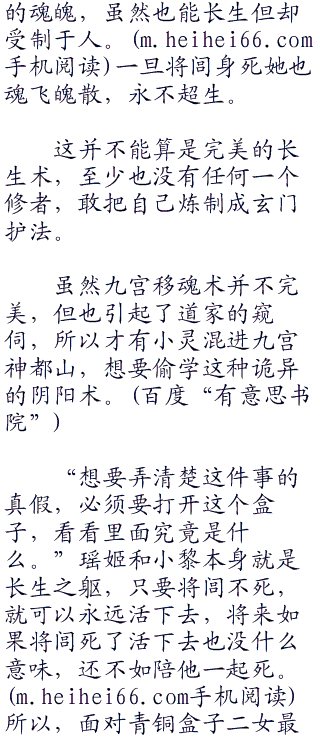 的魂魄，虽然也能长生但却
受制于人。(m.heihei66.com
手机阅读)一旦将闾身死她也
魂飞魄散，永不超生。
这并不能算是完美的长
生术，至少也没有任何一个
修者，敢把自己炼制成玄门
护法。
虽然九宫移魂术并不完
美，但也引起了道家的窥
伺，所以才有小灵混进九宫
神都山，想要偷学这种诡异
的阴阳术。(百度“有意思书
院”)
“想要弄清楚这件事的
真假，必须要打开这个盒
子，看看里面究竟是什
么。”瑶姬和小黎本身就是
长生之躯，只要将闾不死，
就可以永远活下去，将来如
果将闾死了活下去也没什么
意味，还不如陪他一起死。
(m.heihei66.com手机阅读)
所以，面对青铜盒子二女最